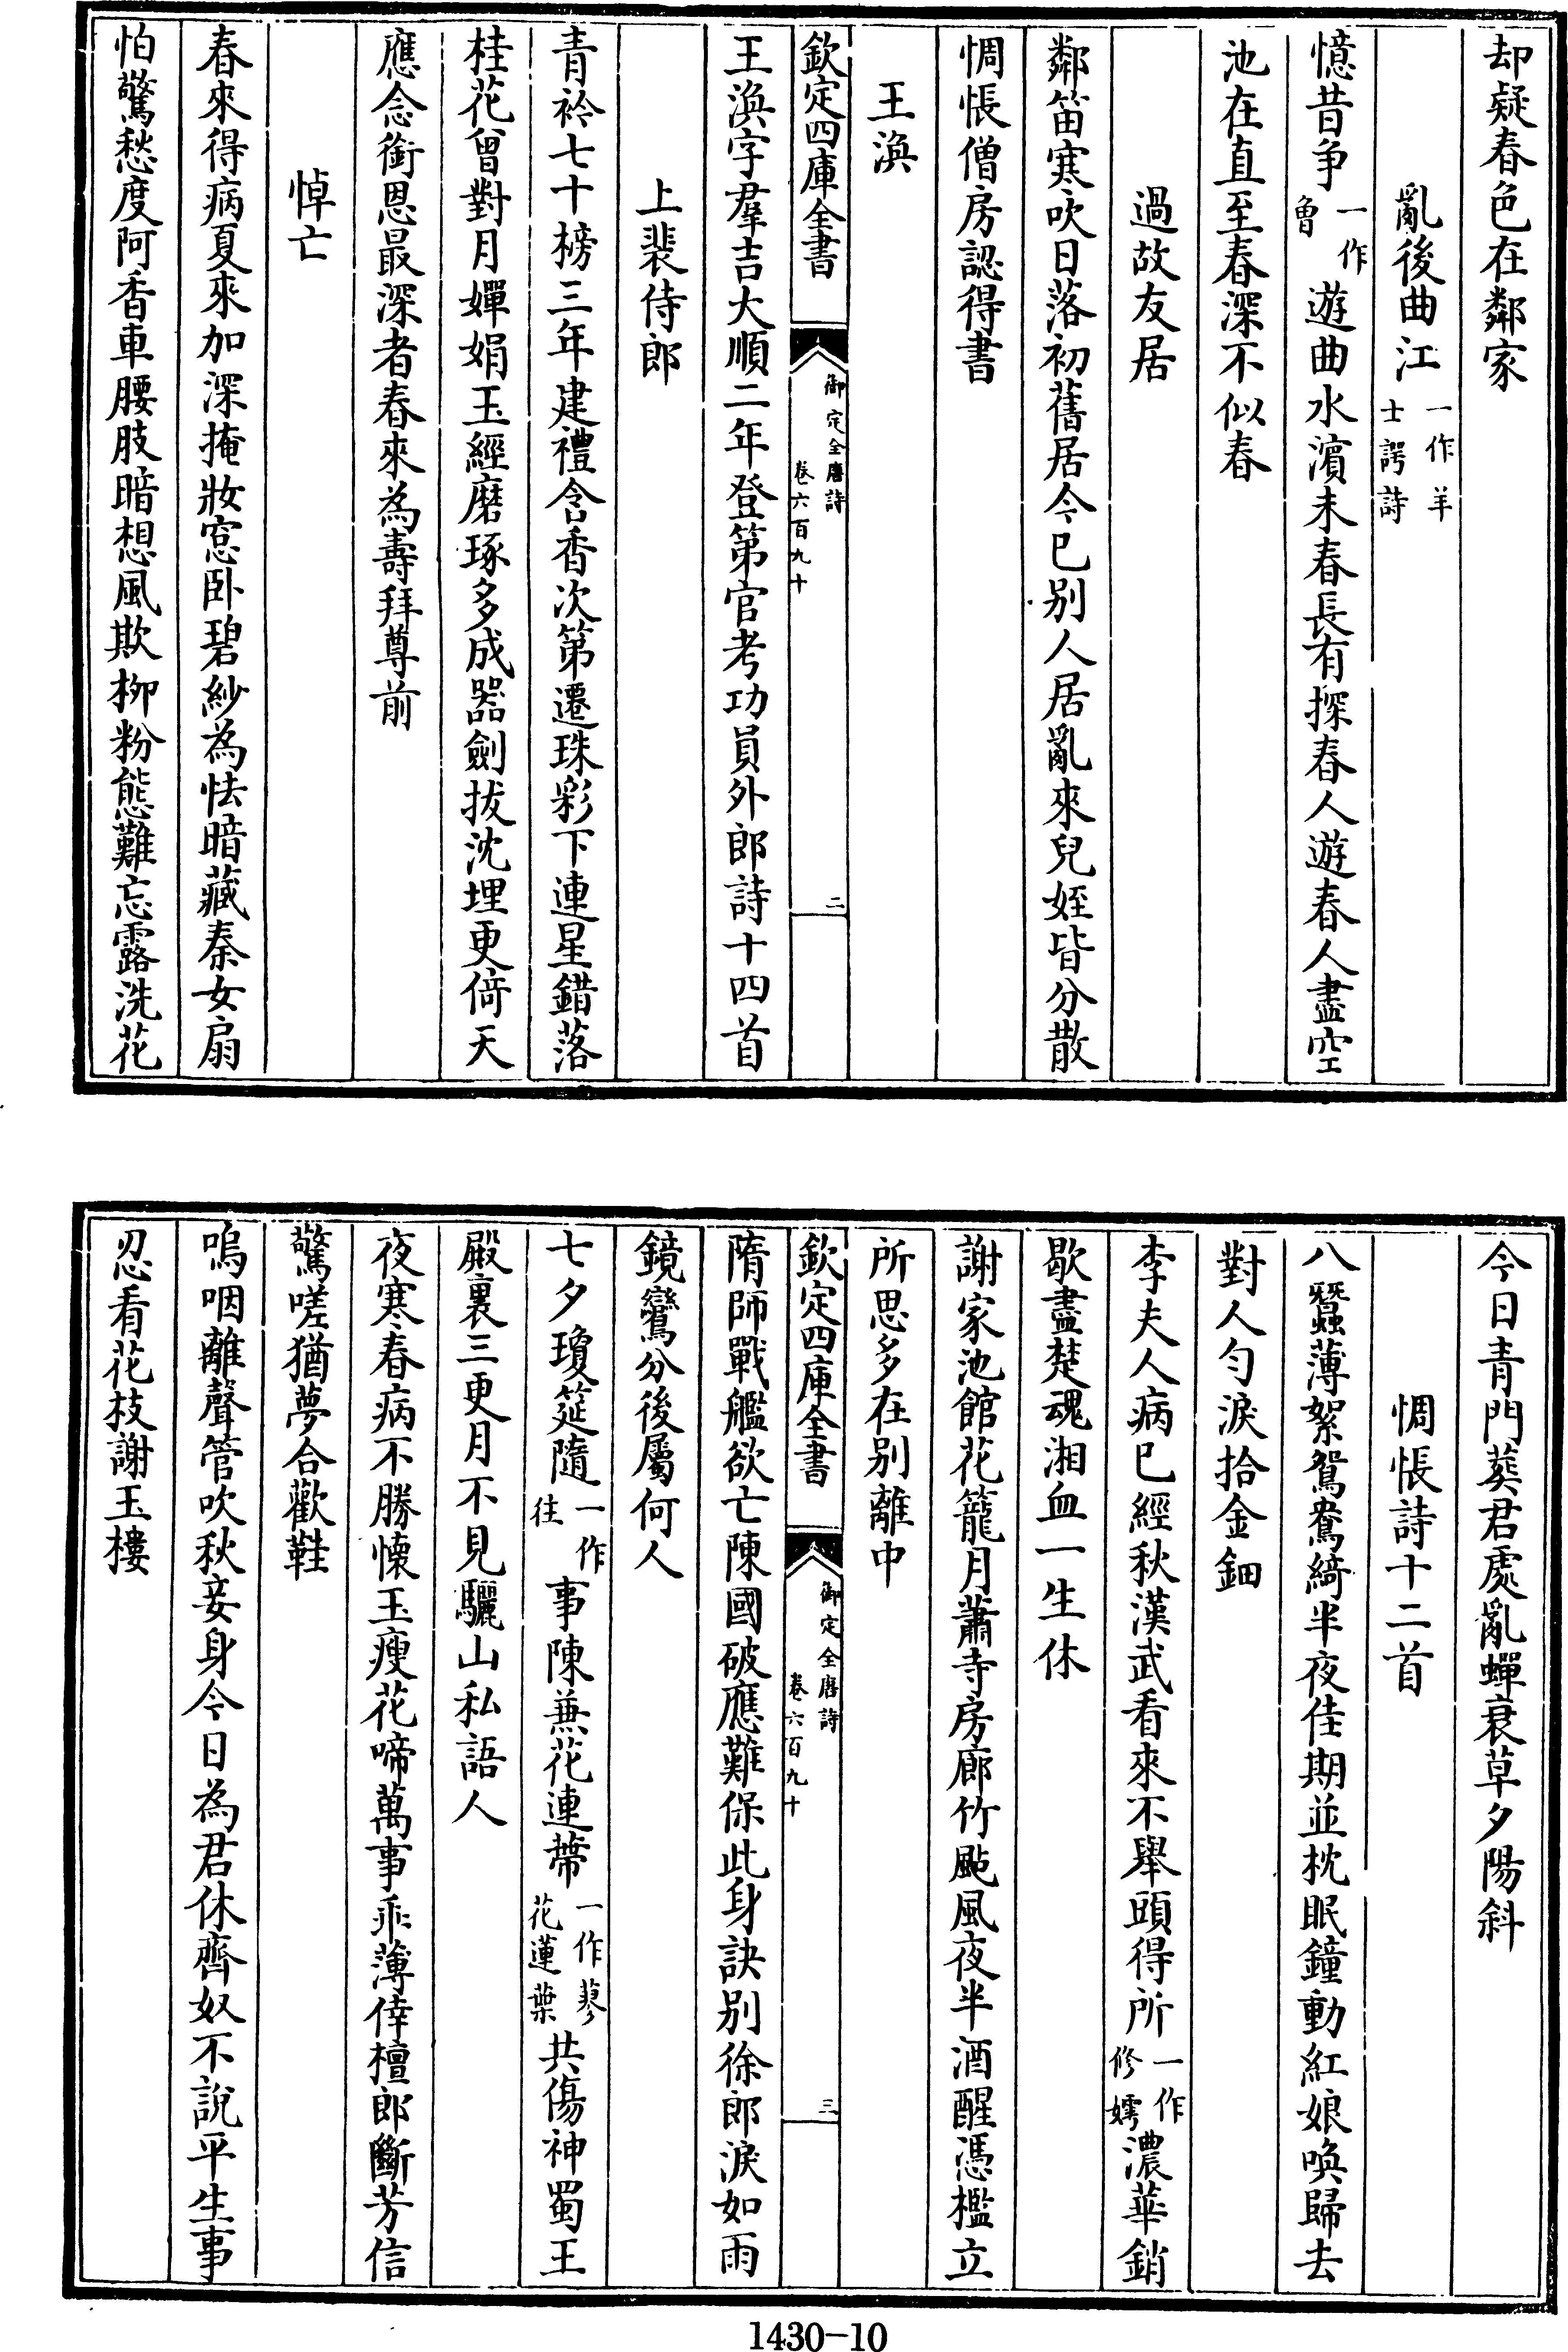 却疑春色在鄰家
亂後曲江一作羊士諤詩
憶昔爭一作魯遊曲水濱未春長有探春人遊春人盡空
池在直至春深不似春
過故友居
鄰笛寒吹日落初舊居今已别人居亂來兒姪皆分散
惆悵僧房認得書
王渙
欽定四庫全書
御定全唐詩
卷六百九十
二
王渙字羣吉大順二年登第官考功員外郎詩十四首
上裴侍郎
青衿七十榜三年建禮含香次第遷珠彩下連星錯落
桂花曾對月嬋娟玉經磨琢多成器劍拔沈埋更倚天
應念銜恩最深者春來為壽拜尊前
悼亡
春來得病夏來加深掩妝窓卧碧紗為怯暗藏秦女扇
怕驚愁度阿香車腰肢暗想風欺柳粉態難忘露洗花
今日青門葬君處亂蟬衰草夕陽斜
惆悵詩十二首
八蠶薄絮鴛鴦綺半夜佳期並枕眠鐘動紅娘喚歸去
對人匀淚拾金鈿
李夫人病已經秋漢武看來不舉頭得所一作修嫮濃華銷
歇盡楚魂湘血一生休
謝家池館花籠月蕭寺房廊竹颭風夜半酒醒憑檻立
所思多在别離中
欽定四庫全書
御定全唐詩
卷六百九十
三
隋師戰艦欲亡陳國破應難保此身訣别徐郎淚如雨
鏡鸞分後屬何人
七夕瓊筵隨一作往事陳蒹花連蔕一作蓼花蓮葉共傷神蜀王
殿裏三更月不見驪山私語人
夜寒春病不勝懷玉瘦花啼萬事乖薄倖檀郎斷芳信
驚嗟猶夢合歡鞋
嗚咽離聲管吹秋妾身今日為君休齊奴不說平生事
忍看花枝謝玉樓
1430-10